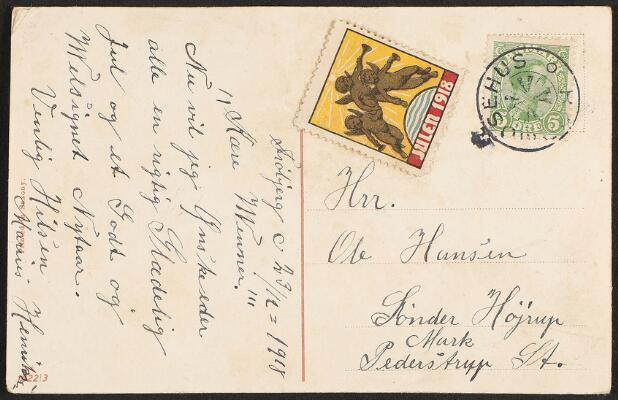 Frøbjerg d 23/12 = 1918
"Kære Venner."
Nu vil jeg Ønske eder
alle en rigtig Glædelig
Jul og et Godt og
Velsignet Nytaar.
Venlig Hilsen
Marius.
JULEN 1918
SEHUS
ØRE 5
Hrr.
Ole Hansen
Sønder Højrup
Mark
Pederstrup St.